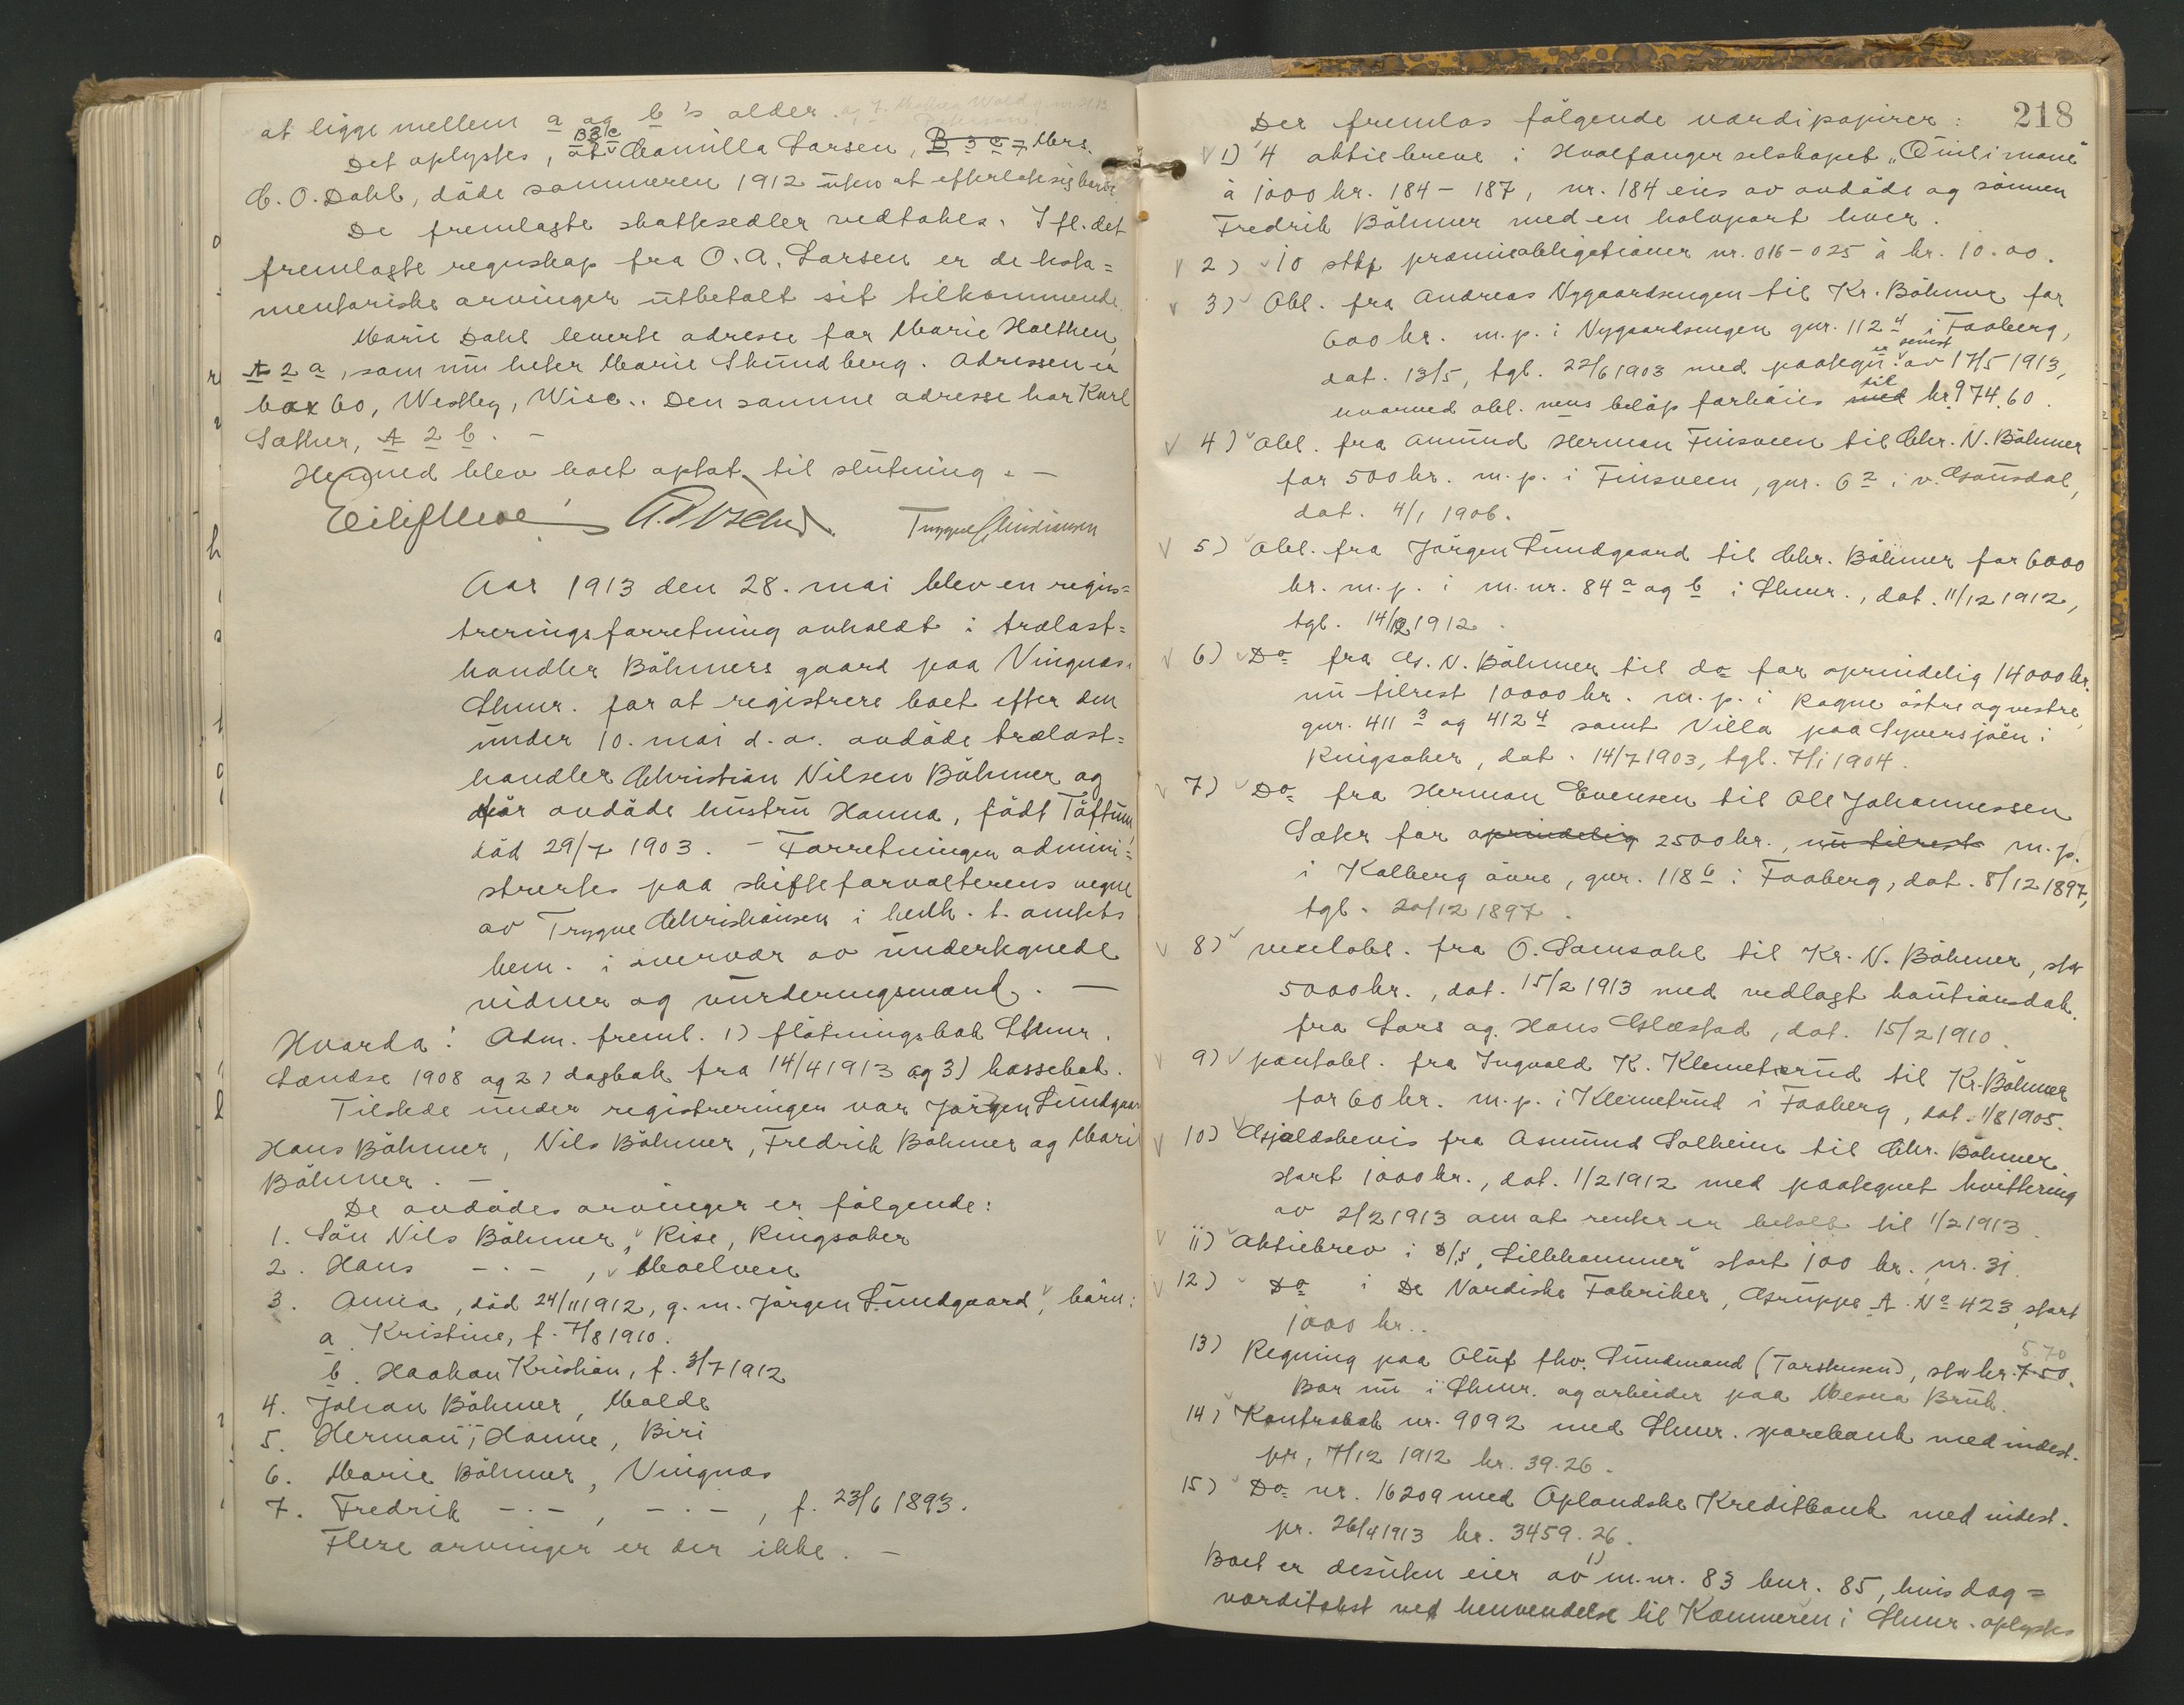 at ligge mellem a og b's alder. og J. Mathea Wold g. nr. 2113
B 3 c
Det oplystes, at Camilla Larsen, B 3 c = Mrs.
C. O. Dahl, döde sommeren 1912 uten at efterlate sig barn.
De fremlagte skattesedler vedtokes. Ifl. det
fremlagte regnskap fra O. A. Larsen er de testa=
mentariske arvinger utbetalt sit tilkommende.
Marie Dahl leverte adresse for Marie Holthen,
A 2 a, som nu heter Marie Skundberg. Adressen er
box 60, Westby, Wisc.. Den samme adresse har Karl
Sæther, A 2 b. –
Hermed blev boet optat til slutning. –
Eilif Moe A. Trygve Christiansen
Aar 1913 den 28. mai blev en regis=
treringsforretning avholdt i trælast=
handler Böhmers gaard paa Vingnes,
Lhmr. for at registrere boet efter den
under 10. mai d. a. avdöde trælast=
handler Christian Nilsen Böhmer og
för avdöde hustru Hanna, födt Töftum,
död 29/7 1903. – Forretningen admini=
strertes paa skifteforvalterens vegne
av Trygve Christiansen i henh. t. amtets
bem. i nervær av undertegnede
vidner og vurderingsmænd. –
Hvorda: Adm. freml. 1) flötningsbok Lhmr.
Lændse 1908 og 2) dagbok fra 14/4 1913 og 3) kassebok.
Tilstede under registreringen var Jörgen Sundgaard
Hans Böhmer, Nils Böhmer, Fredrik Böhmer og Marie
Böhmer. –
De avdödes arvinger er fölgende:
1. Sön Nils Böhmer, Rise, Ringsaker
2. Hans –.–, Moelven
3. Anna, död 24/11 1912, g. m. Jörgen Sundgaard, barn:
a. Kristine, f. 7/8 1910.
b. Haakon Kristian, f. 3/7 1912
4. Johan Böhmer, Molde
5. Herman ", Hanne, Biri
6. Marie Böhmer, Vingnes
7. Fredrik –.–, –.–, f. 23/6 1893.
Flere arvinger er der ikke. –
218
Der fremlas fölgende værdipapirer:
1) 4 aktiebreve i Hvalfangerselskapet "Quilimane"
à 1000 kr. 184 – 187, nr. 184 eies av avdöde og sönnen
Fredrik Böhmer med en halvpart hver.
2) 10 stkr præmieobligationer nr. 016 – 025 à kr. 10.00.
3) Obl. fra Andreas Nygaardsengen til Kr. Böhmer for
600 kr. m. p. i Nygaardsengen gnr. 112 4 i Faaberg,
dat. 13/5, tgl. 22/6 1903 med paategn. er senest av 17/5 1913,
hvorved obl. nens belöp forhöies med til kr. 974.60.
4) Obl. fra Amund Herman Finsveen til Chr. N. Böhmer
for 500 kr. m. p. i Finsveen, gnr. 6 2 i v. Gausdal,
dat. 4/1 1906.
5) Obl. fra Jörgen Sundgaard til Chr. Böhmer for 6000
kr. m. p. i m. nr. 84 a og b i Lhmr., dat. 11/12 1912,
tgl. 14/12 1912.
6) Do fra N. Böhmer til do for oprindelig 14000 kr.
nu tilrest 10000 kr. m. p. i Rogne östre og vestre,
gnr. 411 3 og 412 4 samt Villa paa Syversjöen i
Ringsaker, dat. 14/7 1903, tgl. 7/1 1904.
7) Do fra Herman Evensen til Ole Johannessen
Sæter for oprindelig 2500 kr., nu tilrest m. p.
i Kolberg övre, gnr. 118 6 i Faaberg, dat. 8/12 1897,
tgl. 20/12 1897.
8) vexelobl. fra O. Lamsahl til Kr. N. Böhmer, stor
5000 kr., dat. 15/2 1913 med vedlagt kautionsdok.
fra Lars og Hans Glæstad, dat. 15/2 1910.
9) pantobl. fra Ingvald K. Klemetsrud til Kr. Böhmer
for 60 kr. m. p. i Klemetrud i Faaberg, dat. 1/8 1905.
10) Gjældsbevis fra Asmund Solheim til Chr. Böhmer.
stort 1000 kr., dat. 1/2 1912 med paategnet kvittering
av 2/2 1913 om at renter er betalt til 1/2 1913.
11) Aktiebrev i D/S "Lillehammer" stort 100 kr., nr. 31.
12) Do i De Nordiske Fabriker, Gruppe A. No 423, stort
1000 kr..
13) Regning paa Oluf fhv. Sundmand (Torstensen), stor kr. 7.50. 5.70
Bor nu i Lhmr. og arbeider paa Mesna Bruk.
14) Kontrabok nr. 9092 med Lhmr. sparebank med indest.
pr. 7/12 1912 kr. 39.26.
15) Do nr. 16209 med Oplandske Kreditbank med indest.
pr. 26/4 1913 kr. 3459.26.
Boet er desuten eier av 1) m. nr. 83 bnr. 85, hvis dag=
værditakst ved henvendelse til Kæmneren i Lhmr. oplystes